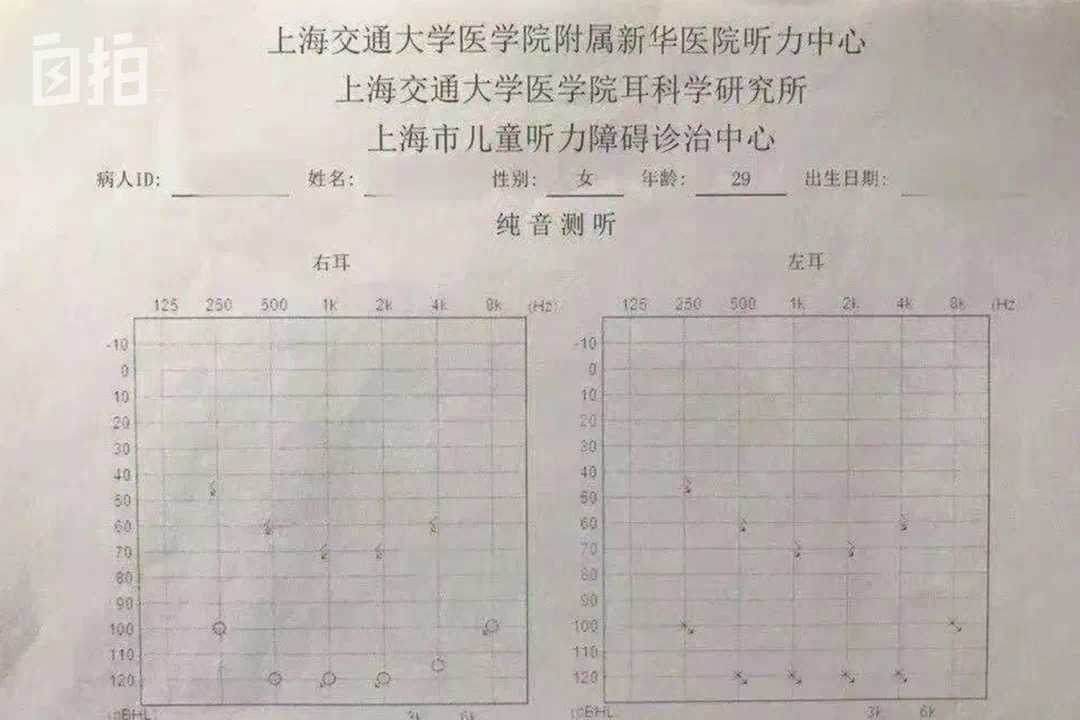 自拍
上海交通大学医学院附属新华医院听力中心
上海交通大学医学院耳科学研究所
上海市儿童听力障碍诊治中心
病人ID: 姓名: 性别: 女 年龄: 29 出生日期:
纯音测听
右耳 左耳
125 250 500 1k 2k 4k 8k (Hz) 125 250 500 1k 2k 4k 8k (Hz
-10 -10
0 0
10 10
20 20
30 30
40 40
50 50
60 60
70 70
80 80
90 90
100 100
110 110
120 120
(dBHL) 3k 6k (dBHL 3k 6k